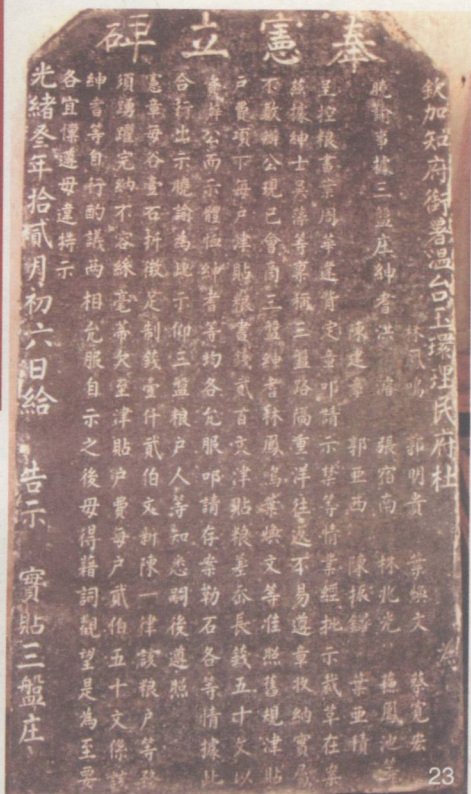 奉憲立碑
欽加知府銜署温台玉環理民府杜
林鳳鳴 郭明貴 葉煥文 蔡寬宏
曉諭事據三盤庄紳耆洪 張宿南 林兆光 蘇鳳池等
陳建章 郭亞西 陳振鐸 葉亞積
呈控粮書葉周華違背定章叩請示禁等情業經批示裁革在案
茲據紳士吳藻等禀稱三盤路隔重洋往返不易遵章收納實屬
不敷辦公現已會商三盤紳耆林鳳鳴葉煥文等准照舊規津貼
戶費項下每戶津貼粮書錢貳百文津貼粮差谷長錢五十文以
資辦公而示體恤紳耆等均各允服叩請存案勒石各等情據此
合行出示曉諭為此示仰三盤粮戶人等知悉嗣後遵照
憲章每谷壹石折徵足制錢壹仟貳伯文新陳一律該粮戶等務
須踴躍完納不容絲毫蒂欠至津貼戶費每戶貳伯五十文係該
紳耆等自行酌議兩相允服自示之後毋得藉詞觀望是為至要
各宜懍遵毋違特示
光緒叁年拾貳月初六日給 告示 實貼三盤庄
23